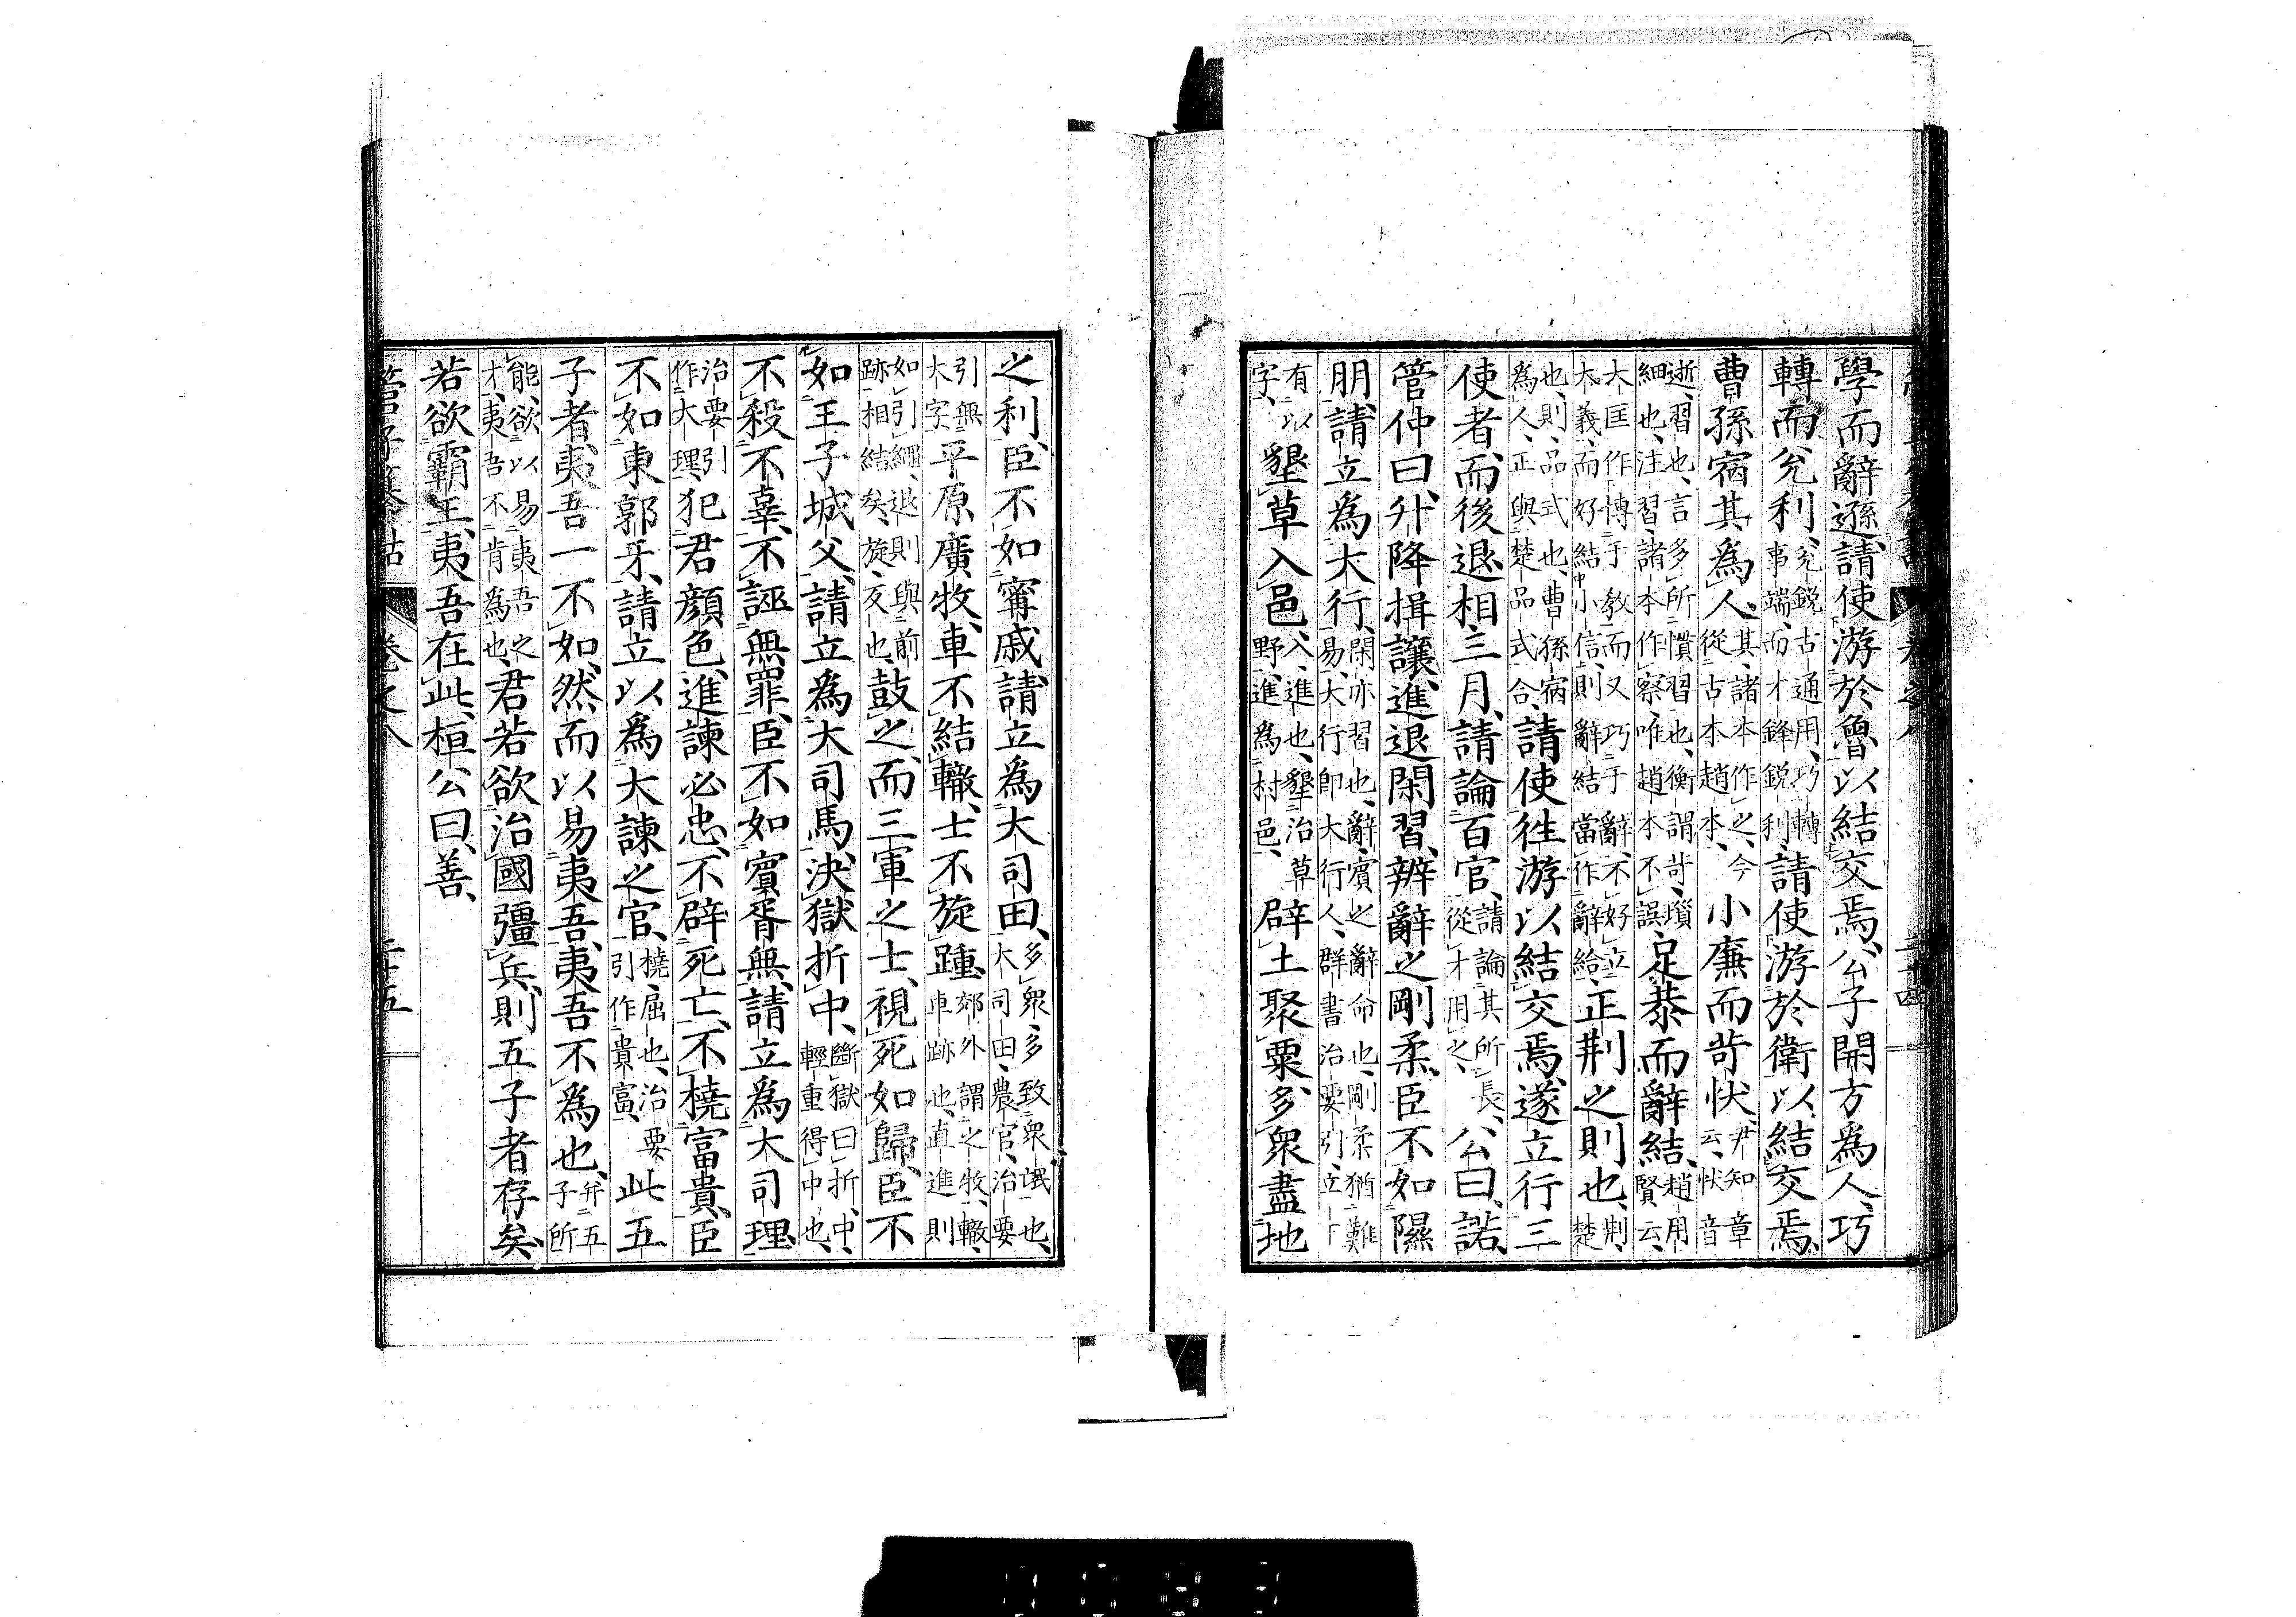 學而辭遜、請使游於魯以結交焉、公子開方爲人、巧
轉而兊利、兊鋭古通用、巧轉事端、而才鋒鋭利、請使游於衛以結交焉、
曹孫宿其爲人、其、諸本作之、今從古本趙本、小廉而苛忕、尹知章云、忕音
逝、習也、言多所慣習也、衡謂苛、瑣細也、注習、諸本作察、唯趙本不誤、足恭而辭結、趙用賢云、
大匡作博于敎而又巧于辭、不好立大義、而好結小信、則辭結當作辭給、正荆之則也、荆、楚
也、則、品式也、曹孫宿爲人、正與楚品式合、請使往游以結交焉、遂立行三
使者、而後退、相三月、請論百官、請論其所長、從才用之、公曰、諾、
管仲曰、升降揖讓、進退閑習、辨辭之剛柔、臣不如隰
朋、請立爲大行、閑亦習也、辭、賓之辭命也、剛柔猶難易、大行卽大行人、群書治要引、立下
有以字、墾草入邑、入、進也、墾治草野、進爲村邑、辟土聚粟、多衆盡地
之利、臣不如甯戚、請立爲大司田、多衆、多致衆氓也、大司田、農官、治要
引無大字、平原廣牧、車不結轍、士不旋踵、郊外謂之牧、轍、車跡也、直進則
如引繩、退則與前跡相結矣、旋、反也、鼓之、而三軍之士、視死如歸、臣不
如王子城父、請立爲大司馬、決獄折中、斷獄曰折、中、輕重得中也、
不殺不辜、不誣無罪、臣不如賓胥無、請立爲大司理、
治要引作大理、犯君顔色、進諫必忠、不辟死亡、不橈富貴、臣
不如東郭牙、請立以爲大諫之官、橈、屈也、治要引作貴富、此五
子者、夷吾一不如、然而以易夷吾、夷吾不爲也、幷五子所
能、欲以易夷吾之才、夷吾不肯爲也、君若欲治國彊兵、則五子者存矣、
若欲霸王、夷吾在此、桓公曰、善、
管子纂詁 卷之八 二十五